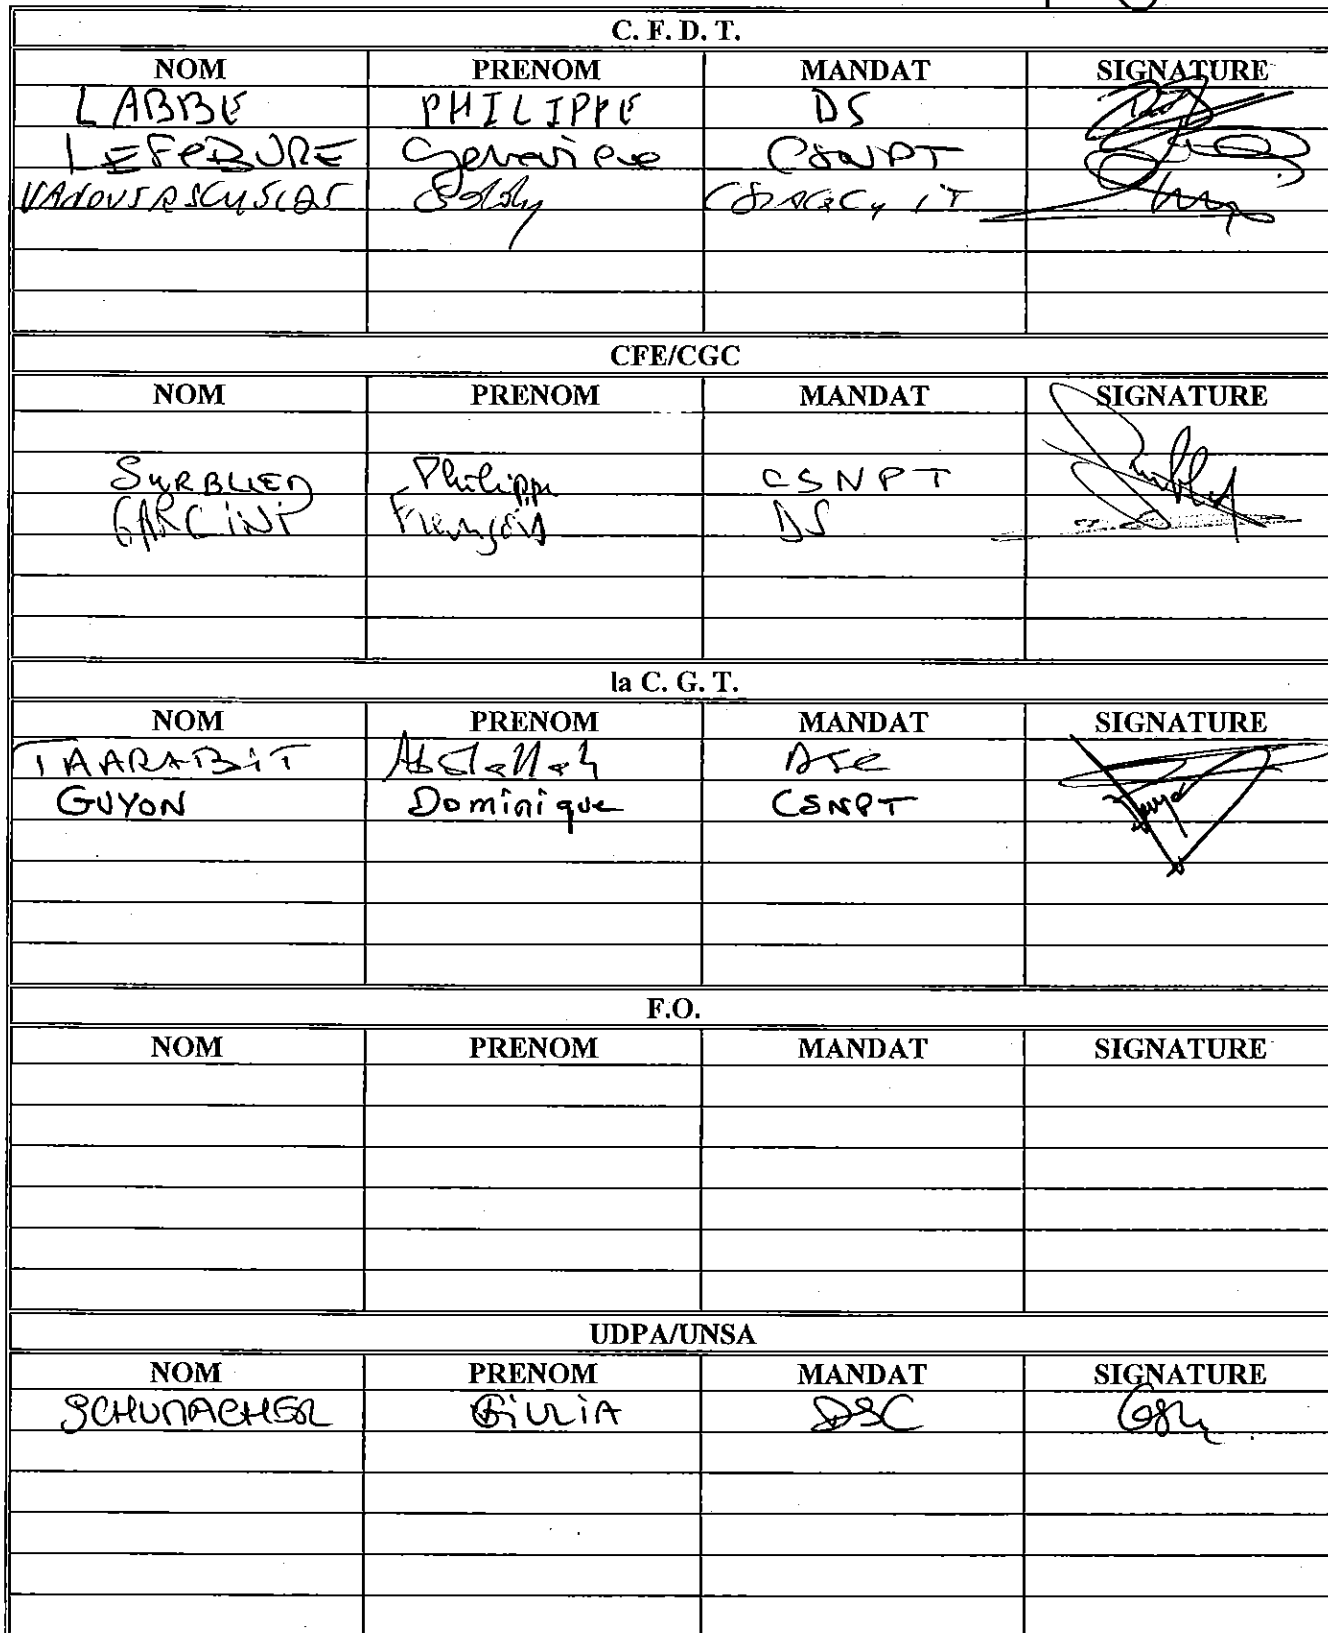 C. F. D. T.
NOM PRENOM MANDAT SIGNATURE
LABBE PHILIPPE DS
LEFEBURE Genevieve CSNPT
CFE/CGC
NOM PRENOM MANDAT SIGNATURE
SURBLED Philippe CSNPT
GARCINI François DS
la C. G. T.
NOM PRENOM MANDAT SIGNATURE
TAARABIT Abdallah
GUYON Dominique CSNPT
F.O.
NOM PRENOM MANDAT SIGNATURE
UDPA/UNSA
NOM PRENOM MANDAT SIGNATURE
SCHUMACHER GIULIA DSC